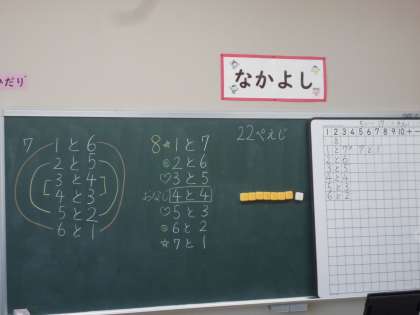 なかよし
ひだり
7 1と6
2と5
3と4
4と3
5と2
6と1
8 ☆1と7
◎2と6
♡3と5
おなじ 4と4
♡5と3
◎6と2
☆7と1
22ぺえじ
1 2 3 4 5 6 7 8 9 10 + -
2と6
3と5
4と4
5と3
6と2